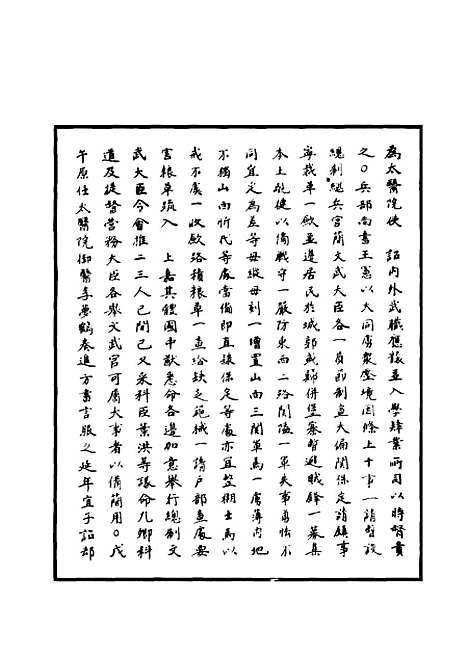 為太醫院使　詔內外武職應襲並入學肄業所司以時督責
之○兵部尚書王憲以大同虜眾壓境因條上十事一請暫設
總制總兵官簡文武大臣各一員節制宣大偏關保定諸鎮事
寧裁革一歛並邊居民於城郭或歸併堡寨暫避賊鋒一募集
本土驍健以備戰守一嚴防東西二路關隘一軍失事勇怯不
同宜定為差等毋縱毋刻一增置山西三關軍馬一虜薄內地
不獨山西忻代等處當備即直隸保定等處亦宜整搠士馬以
戒不虞一收歛路積粮草一查給缺乏砲械一請戶部查處要
害粮草疏入　上嘉其體國中猷悉命各邊加意舉行總制文
武大臣令會推二三人已聞已又采科臣葉洪等議命九卿科
道及提督營務大臣各舉文武官可屬大事者以備簡用○戊
午原任太醫院御醫李夢鶴奏進方書言服之延年宜子詔却